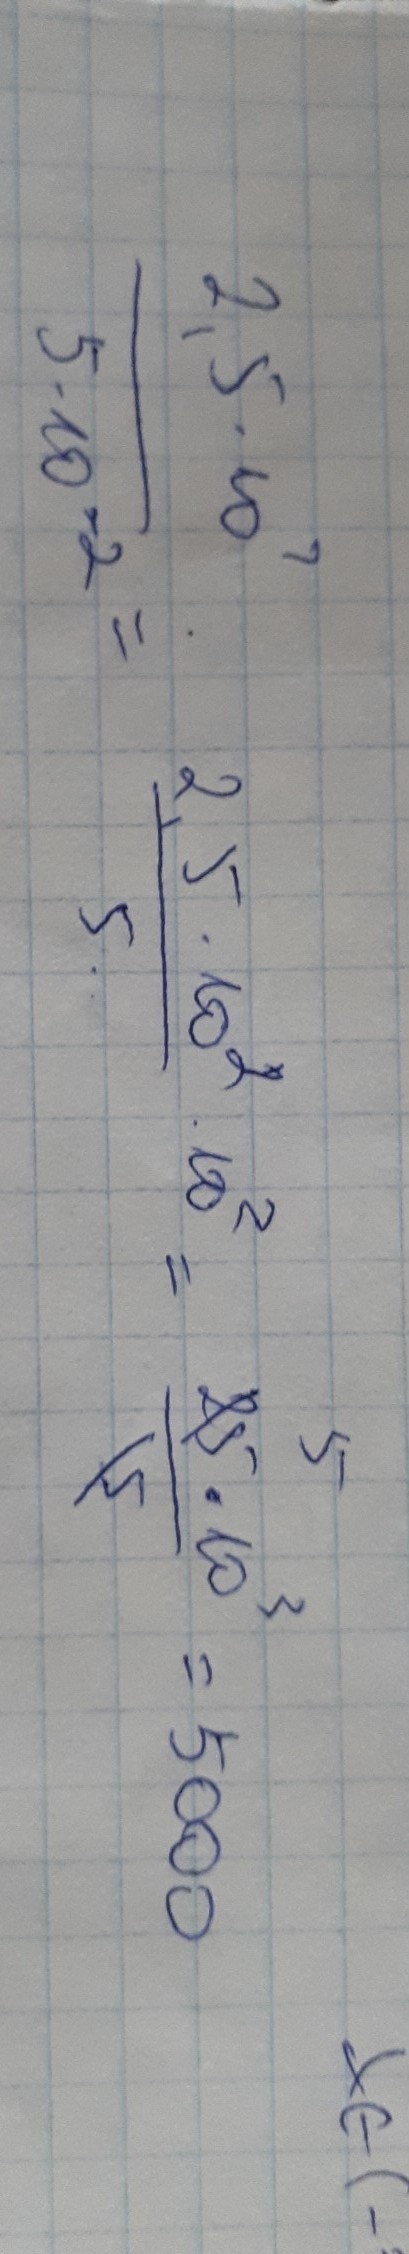 2,5·10⁷ / 5·10⁻² = 2,5·10² / 5 · 10² = 25·10³ / 5 = 5000
5
x∈(-